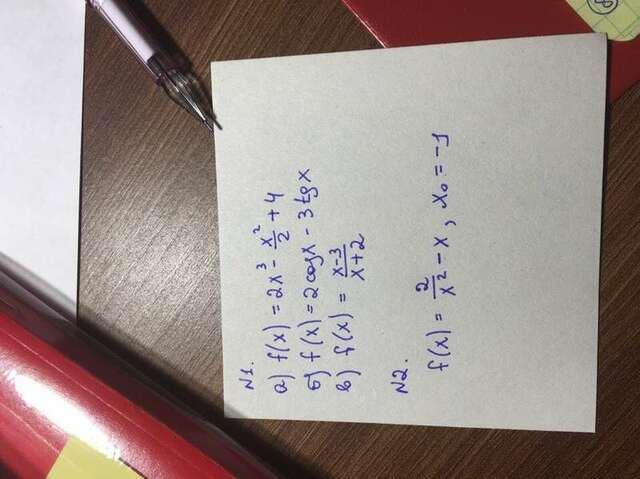 N1.
а) f(x) = 2x³ - x²/2 + 4
б) f(x) = 2cosx - 3tgx
в) f(x) = (x-3)/(x+2)
N2.
f(x) = 2/x² - x, x₀ = -1